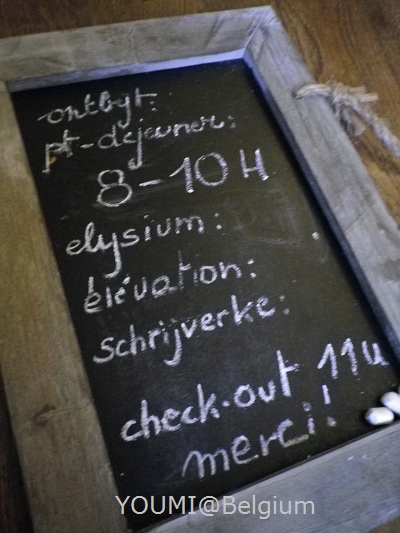 ontbijt:
pt-déjeuner:
8-10H
elysium:
élévation:
schrijverke:
check-out 11u
merci!
YOUMI@Belgium